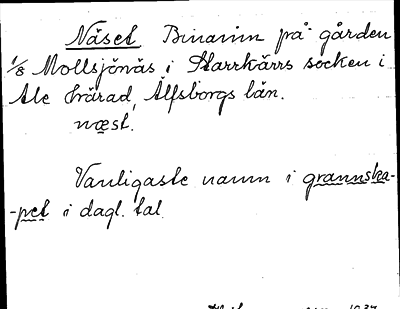 Näset Binamn på gården
1/8 Mollsjönäs i Starrkärrs socken i
Ale härad, Älfsborgs län.
næst.
Vanligaste namn i grannska-
-pet i dagl. tal.